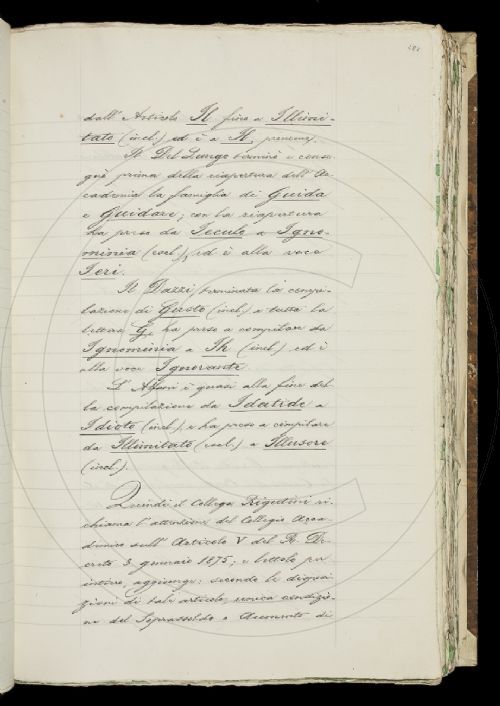 dall' Articolo Il fino a Illimi-
tato (incl.) ed è a Il, pronome.
Il Del Lungo terminò e conse-
gnò prima della riapertura dell' Ac-
cademia la famiglia di Guida
e Guidare; con la riapertura
ha preso da Ieculo a Igno-
minia (escl.), ed è alla voce
Ieri.
Il Dazzi, terminata la compi-
lazione di Giusto (incl.) e tutta la
lettera G, ha preso a compilare da
Ignominia a Ih (incl.) ed è
alla voce Ignorante.
L' Alfani è quasi alla fine del-
la compilazione da Idatide a
Idiota (incl.), e ha preso a compilare
da Illimitato (escl.) a Illusore
(incl.).
Quindi il Collega Rigutini ri-
chiama l' attenzione del Collegio Acca-
demico sull' Articolo V del R. De-
creto 3 gennaio 1875; e lettolo per
intiero, aggiunge: secondo le disposi-
zioni di tale articolo, unica condizio-
ne del Soprassoldo o Aumento di